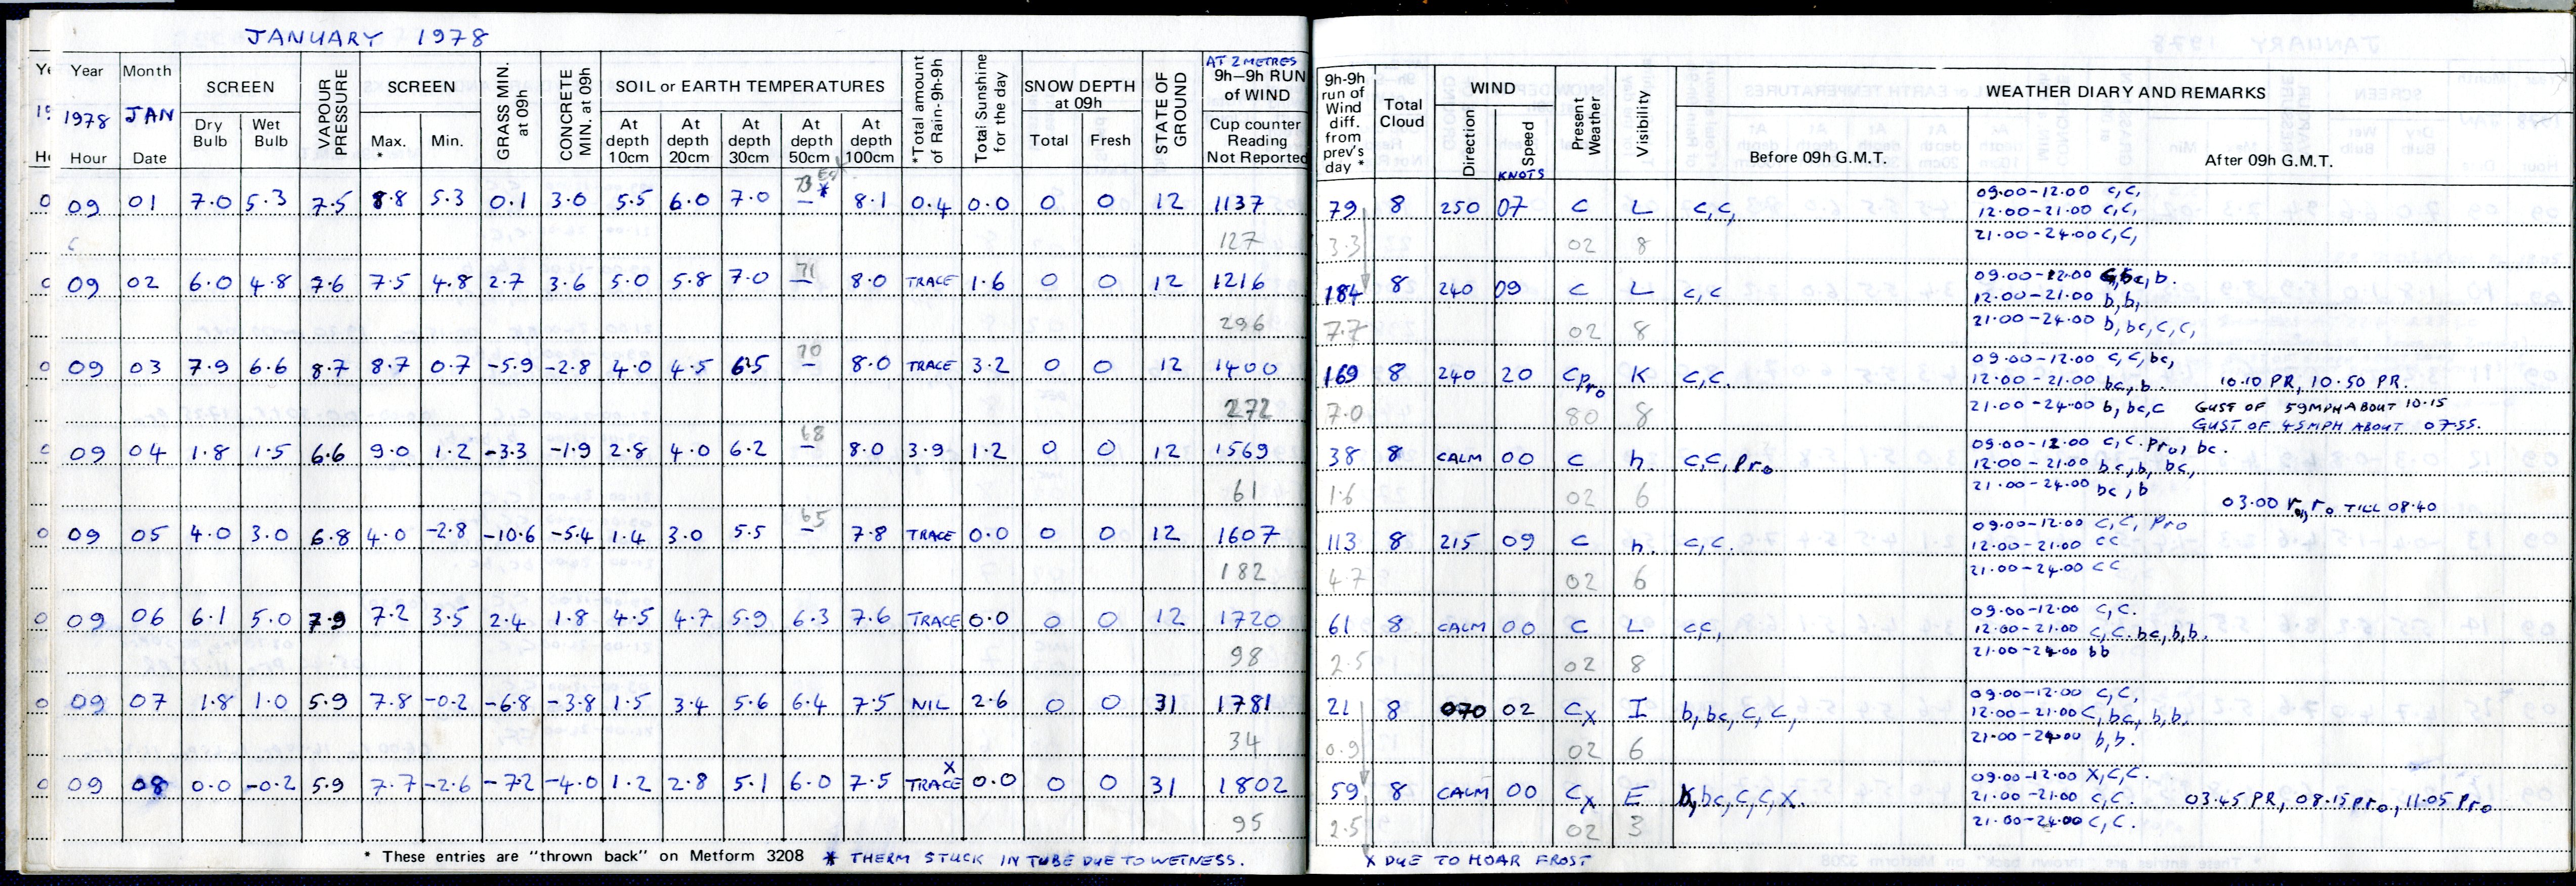 JANUARY 1978
Year Month SCREEN VAPOUR PRESSURE SCREEN GRASS MIN. at 09h CONCRETE MIN. at 09h SOIL or EARTH TEMPERATURES *Total amount of Rain-9h-9h Total Sunshine for the day SNOW DEPTH at 09h STATE OF GROUND AT 2 METRES 9h-9h RUN of WIND
1978 JAN Dry Bulb Wet Bulb Max. * Min. At depth 10cm At depth 20cm At depth 30cm At depth 50cm At depth 100cm Total Fresh Cup counter Reading Not Reported
Hour Date
09 01 7.0 5.3 7.5 8.8 5.3 0.1 3.0 5.5 6.0 7.0 – * 8.1 0.4 0.0 0 0 12 1137
127
09 02 6.0 4.8 7.6 7.5 4.8 2.7 3.6 5.0 5.8 7.0 71 – 8.0 TRACE 1.6 0 0 12 1216
296
09 03 7.9 6.6 8.7 8.7 0.7 -5.9 -2.8 4.0 4.5 6.5 70 – 8.0 TRACE 3.2 0 0 12 1400
272
09 04 1.8 1.5 6.6 9.0 1.2 -3.3 -1.9 2.8 4.0 6.2 68 – 8.0 3.9 1.2 0 0 12 1569
61
09 05 4.0 3.0 6.8 4.0 -2.8 -10.6 -5.4 1.4 3.0 5.5 65 – 7.8 TRACE 0.0 0 0 12 1607
182
09 06 6.1 5.0 7.9 7.2 3.5 2.4 1.8 4.5 4.7 5.9 6.3 7.6 TRACE 0.0 0 0 12 1720
98
09 07 1.8 1.0 5.9 7.8 -0.2 -6.8 -3.8 1.5 3.4 5.6 6.4 7.5 NIL 2.6 0 0 31 1781
34
09 08 0.0 -0.2 5.9 7.7 -2.6 -7.2 -4.0 1.2 2.8 5.1 6.0 7.5 TRACE X 0.0 0 0 31 1802
95
* These entries are "thrown back" on Metform 3208 * THERM STUCK IN TUBE DUE TO WETNESS.
9h-9h run of Wind diff. from prev's day * Total Cloud WIND Present Weather Visibility WEATHER DIARY AND REMARKS
Direction Speed KNOTS Before 09h G.M.T. After 09h G.M.T.
79 8 250 07 C L c,c, 09.00-12.00 c,c,
12.00-21.00 c,c,
3.3 02 8 21.00-24.00 c,c,
184 8 240 09 C L c,c 09.00-12.00 bc,b.
12.00-21.00 b,b,
7.7 02 8 21.00-24.00 b,bc,c,c,
169 8 240 20 Cpro K c,c. 09.00-12.00 c,c,bc,
12.00-21.00 bc,b 10.10 PR, 10.50 PR.
7.0 80 8 21.00-24.00 b,bc,c GUST OF 59MPH ABOUT 10.15
GUST OF 45MPH ABOUT 07.55.
38 8 CALM 00 C h. c,c,pro 09.00-12.00 c,c.pro, bc.
12.00-21.00 bc,b, bc,
1.6 02 6 21.00-24.00 bc,b
03.00 ro TILL 08.40
113 8 215 09 C h. c,c. 09.00-12.00 c,c, Pro
12.00-21.00 cc
4.7 02 6 21.00-24.00 cc
61 8 CALM 00 C L cc, 09.00-12.00 c,c.
12.00-21.00 c,c.bc,b,b.
2.5 02 8 21.00-24.00 bb
21 8 070 02 Cx I b,bc,c,c, 09.00-12.00 c,c,
12.00-21.00 c,bc,b,b.
0.9 02 6 21.00-24.00 b,b.
59 8 CALM 00 Cx E b,bc,c,c,x. 09.00-12.00 x,c,c.
21.00-21.00 c,c. 03.45 PR, 08.15 pro, 11.05 Pro
2.5 02 3 21.00-24.00 c,c.
X DUE TO HOAR FROST